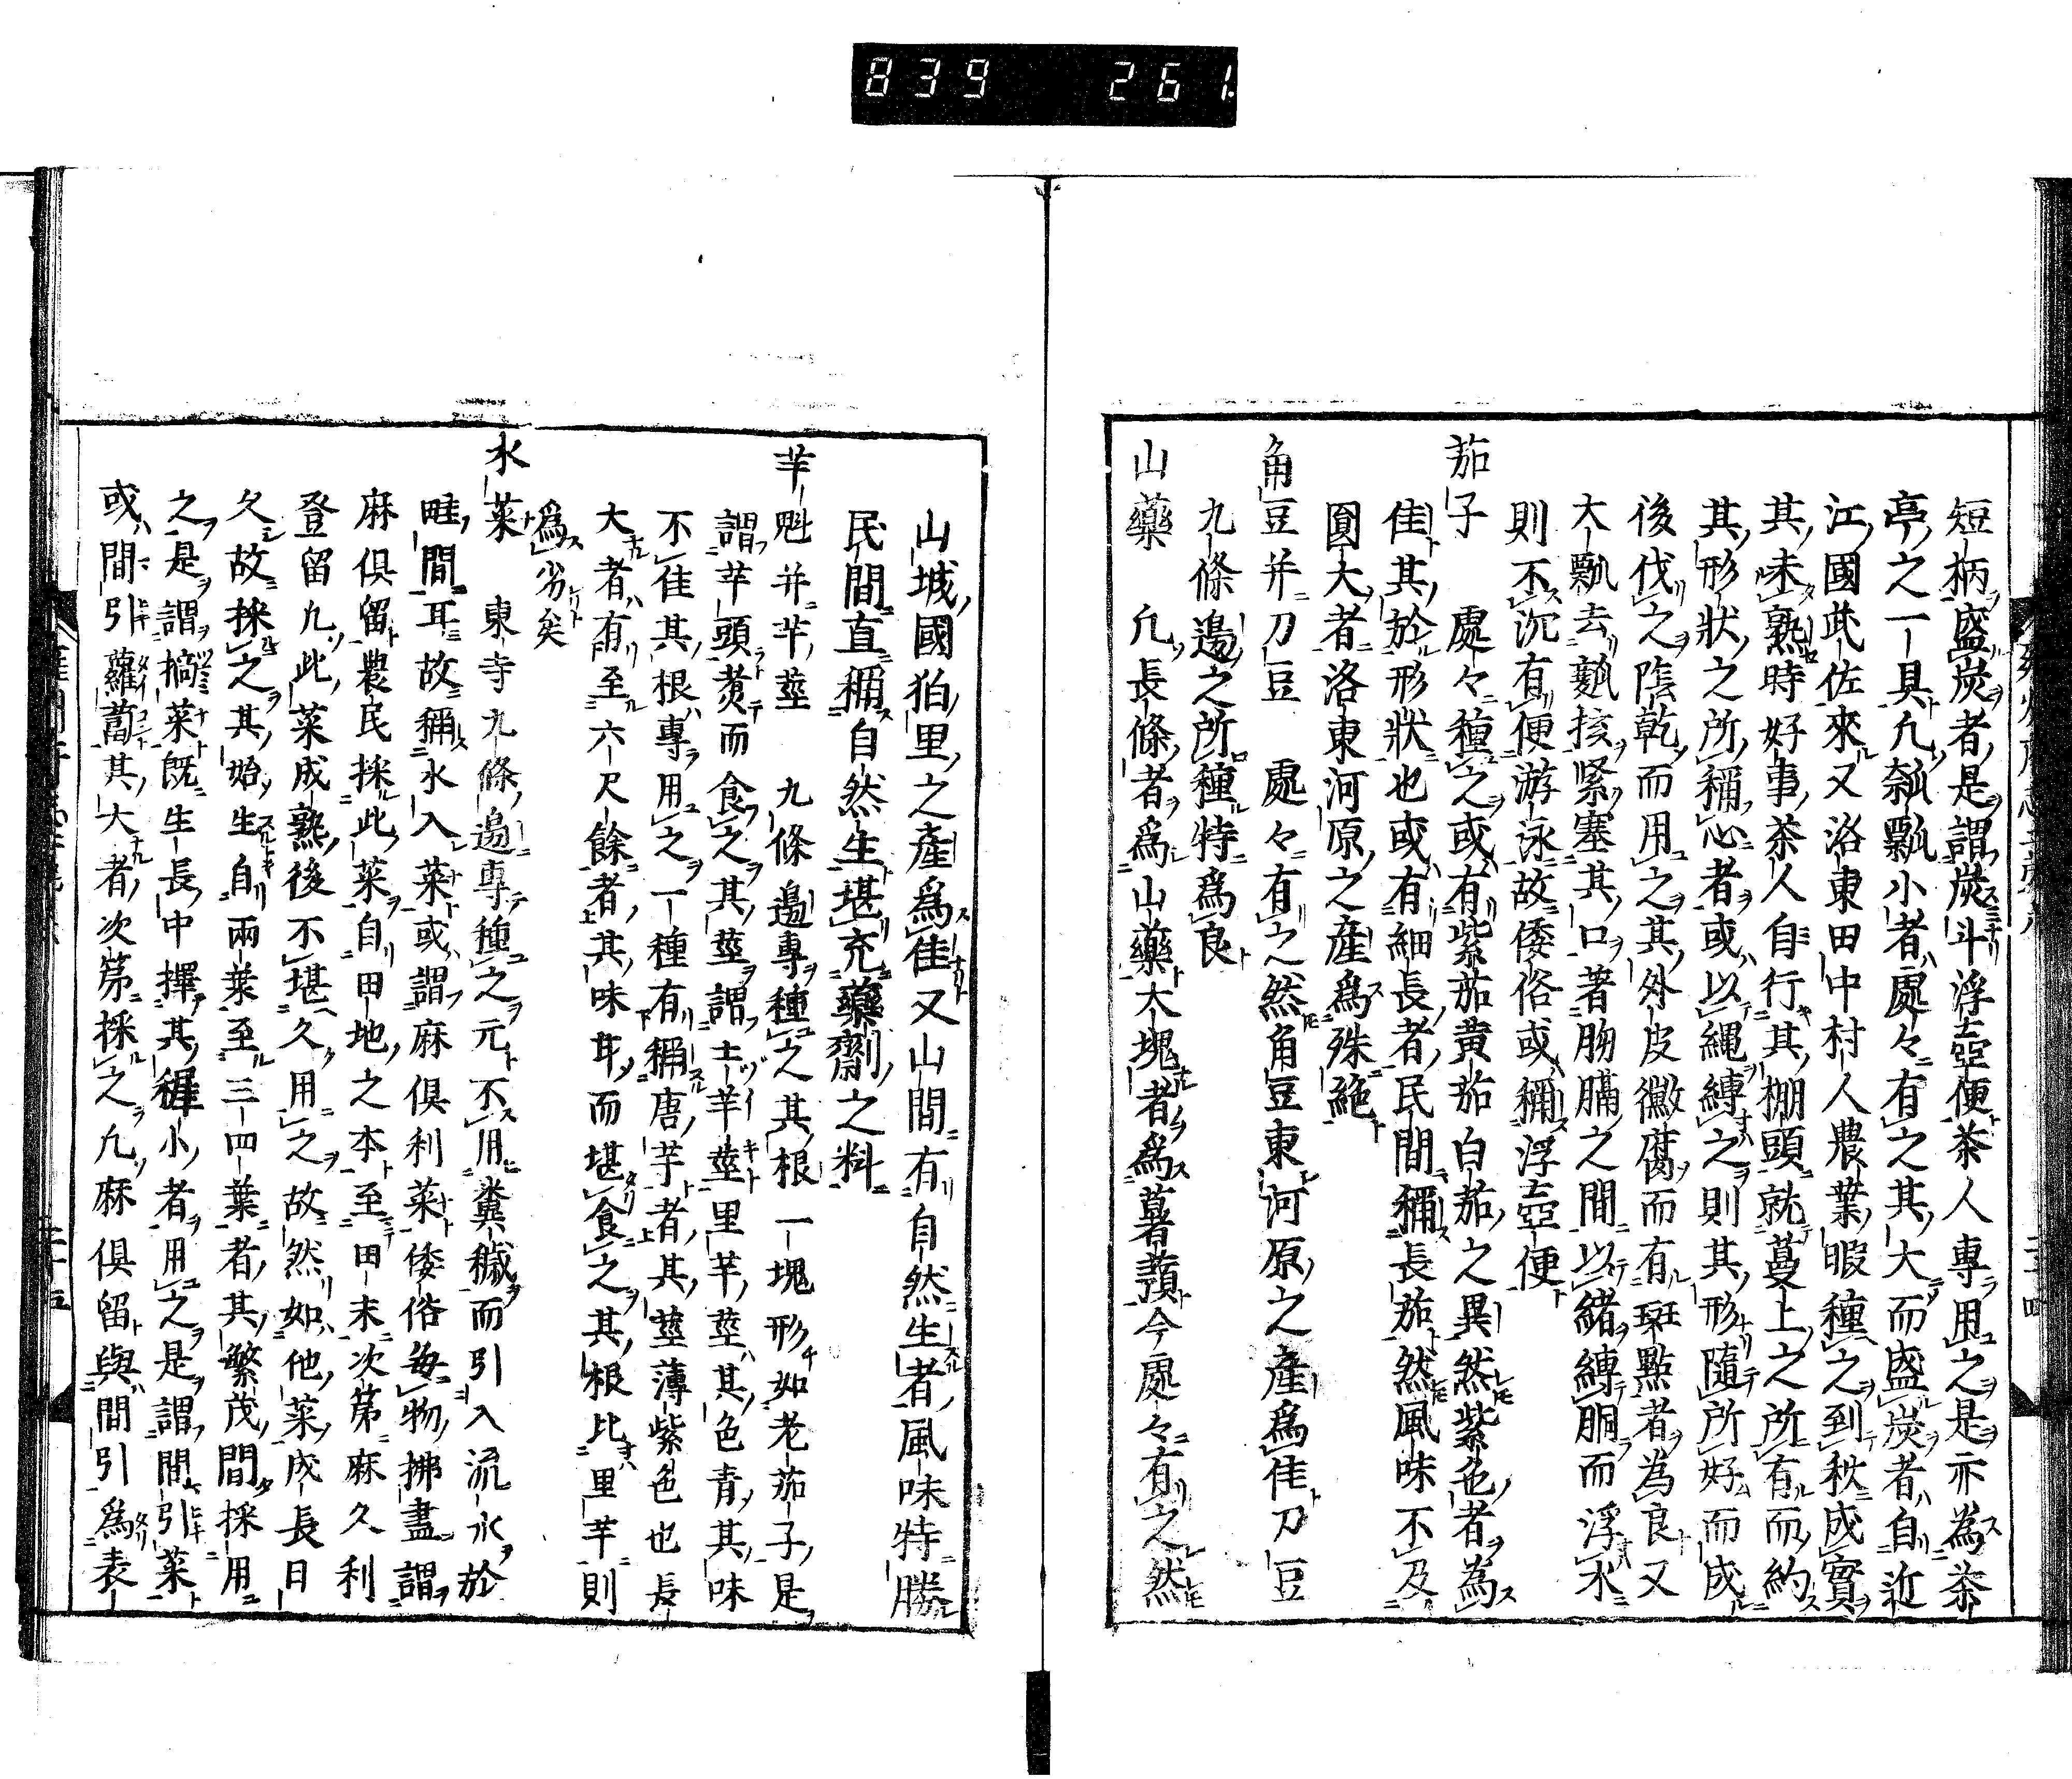 839 261.
短柄盛炭者是謂炭斗浮壺便茶人專用之是亦為茶
亭之一具凢瓠瓢小者處々有之其大而盛炭者自近
江國武佐來又洛東田中村人農業暇種之到秋成實
其未熟時好事茶人自行其棚頭就蔓上之所有而約
其形狀之所稱心者或以縄縛之則其形隨所好而成
後伐之陰乾而用之其外皮黴腐而有斑點者為良又
大瓢去瓤核緊塞其口著胸膈之間以緒縛胴而浮水
則不沉有便游泳故倭俗或稱浮壺便
茄子 處々種之或有紫茄黄茄白茄之異然紫色者為
佳其於形狀也或有細長者民間稱長茄然風味不及
圓大者洛東河原之產為殊絶
角豆并刀豆 處々有之然角豆東河原之產為佳刀豆
九條邊之所種特為良
山藥 凢長條者為山藥大塊者為薯蕷今處々有之然
山城國狛里之產為佳又山間有自然生者風味特勝
民間直稱自然生堪充藥劑之料
芋魁并芋莖 九條邊專種之其根一塊形如老茄子是
謂芋頭煑而食之其莖謂土芋莖里芋莖其色青其味
不佳其根專用之一種有稱唐芋者其莖薄紫色也長
大者有至六尺餘者其味耳而堪食之其根比里芋則
為劣矣
水菜 東寺九條邊專種之元不用糞穢而引入流水於
畦間耳故稱水入菜或謂麻俱利菜倭俗每物拂盡謂
麻俱留農民採此菜自田地之本至田末次第麻久利
登留凢此菜成熟後不堪久用之故然如他菜成長日
久故採之其始生自兩葉至三四葉者其繁茂間採用
之是謂摘菜既生長中擇其穉小者用之是謂間引菜
或間引蘿蔔其大者次第採之凢麻俱留與間引為表